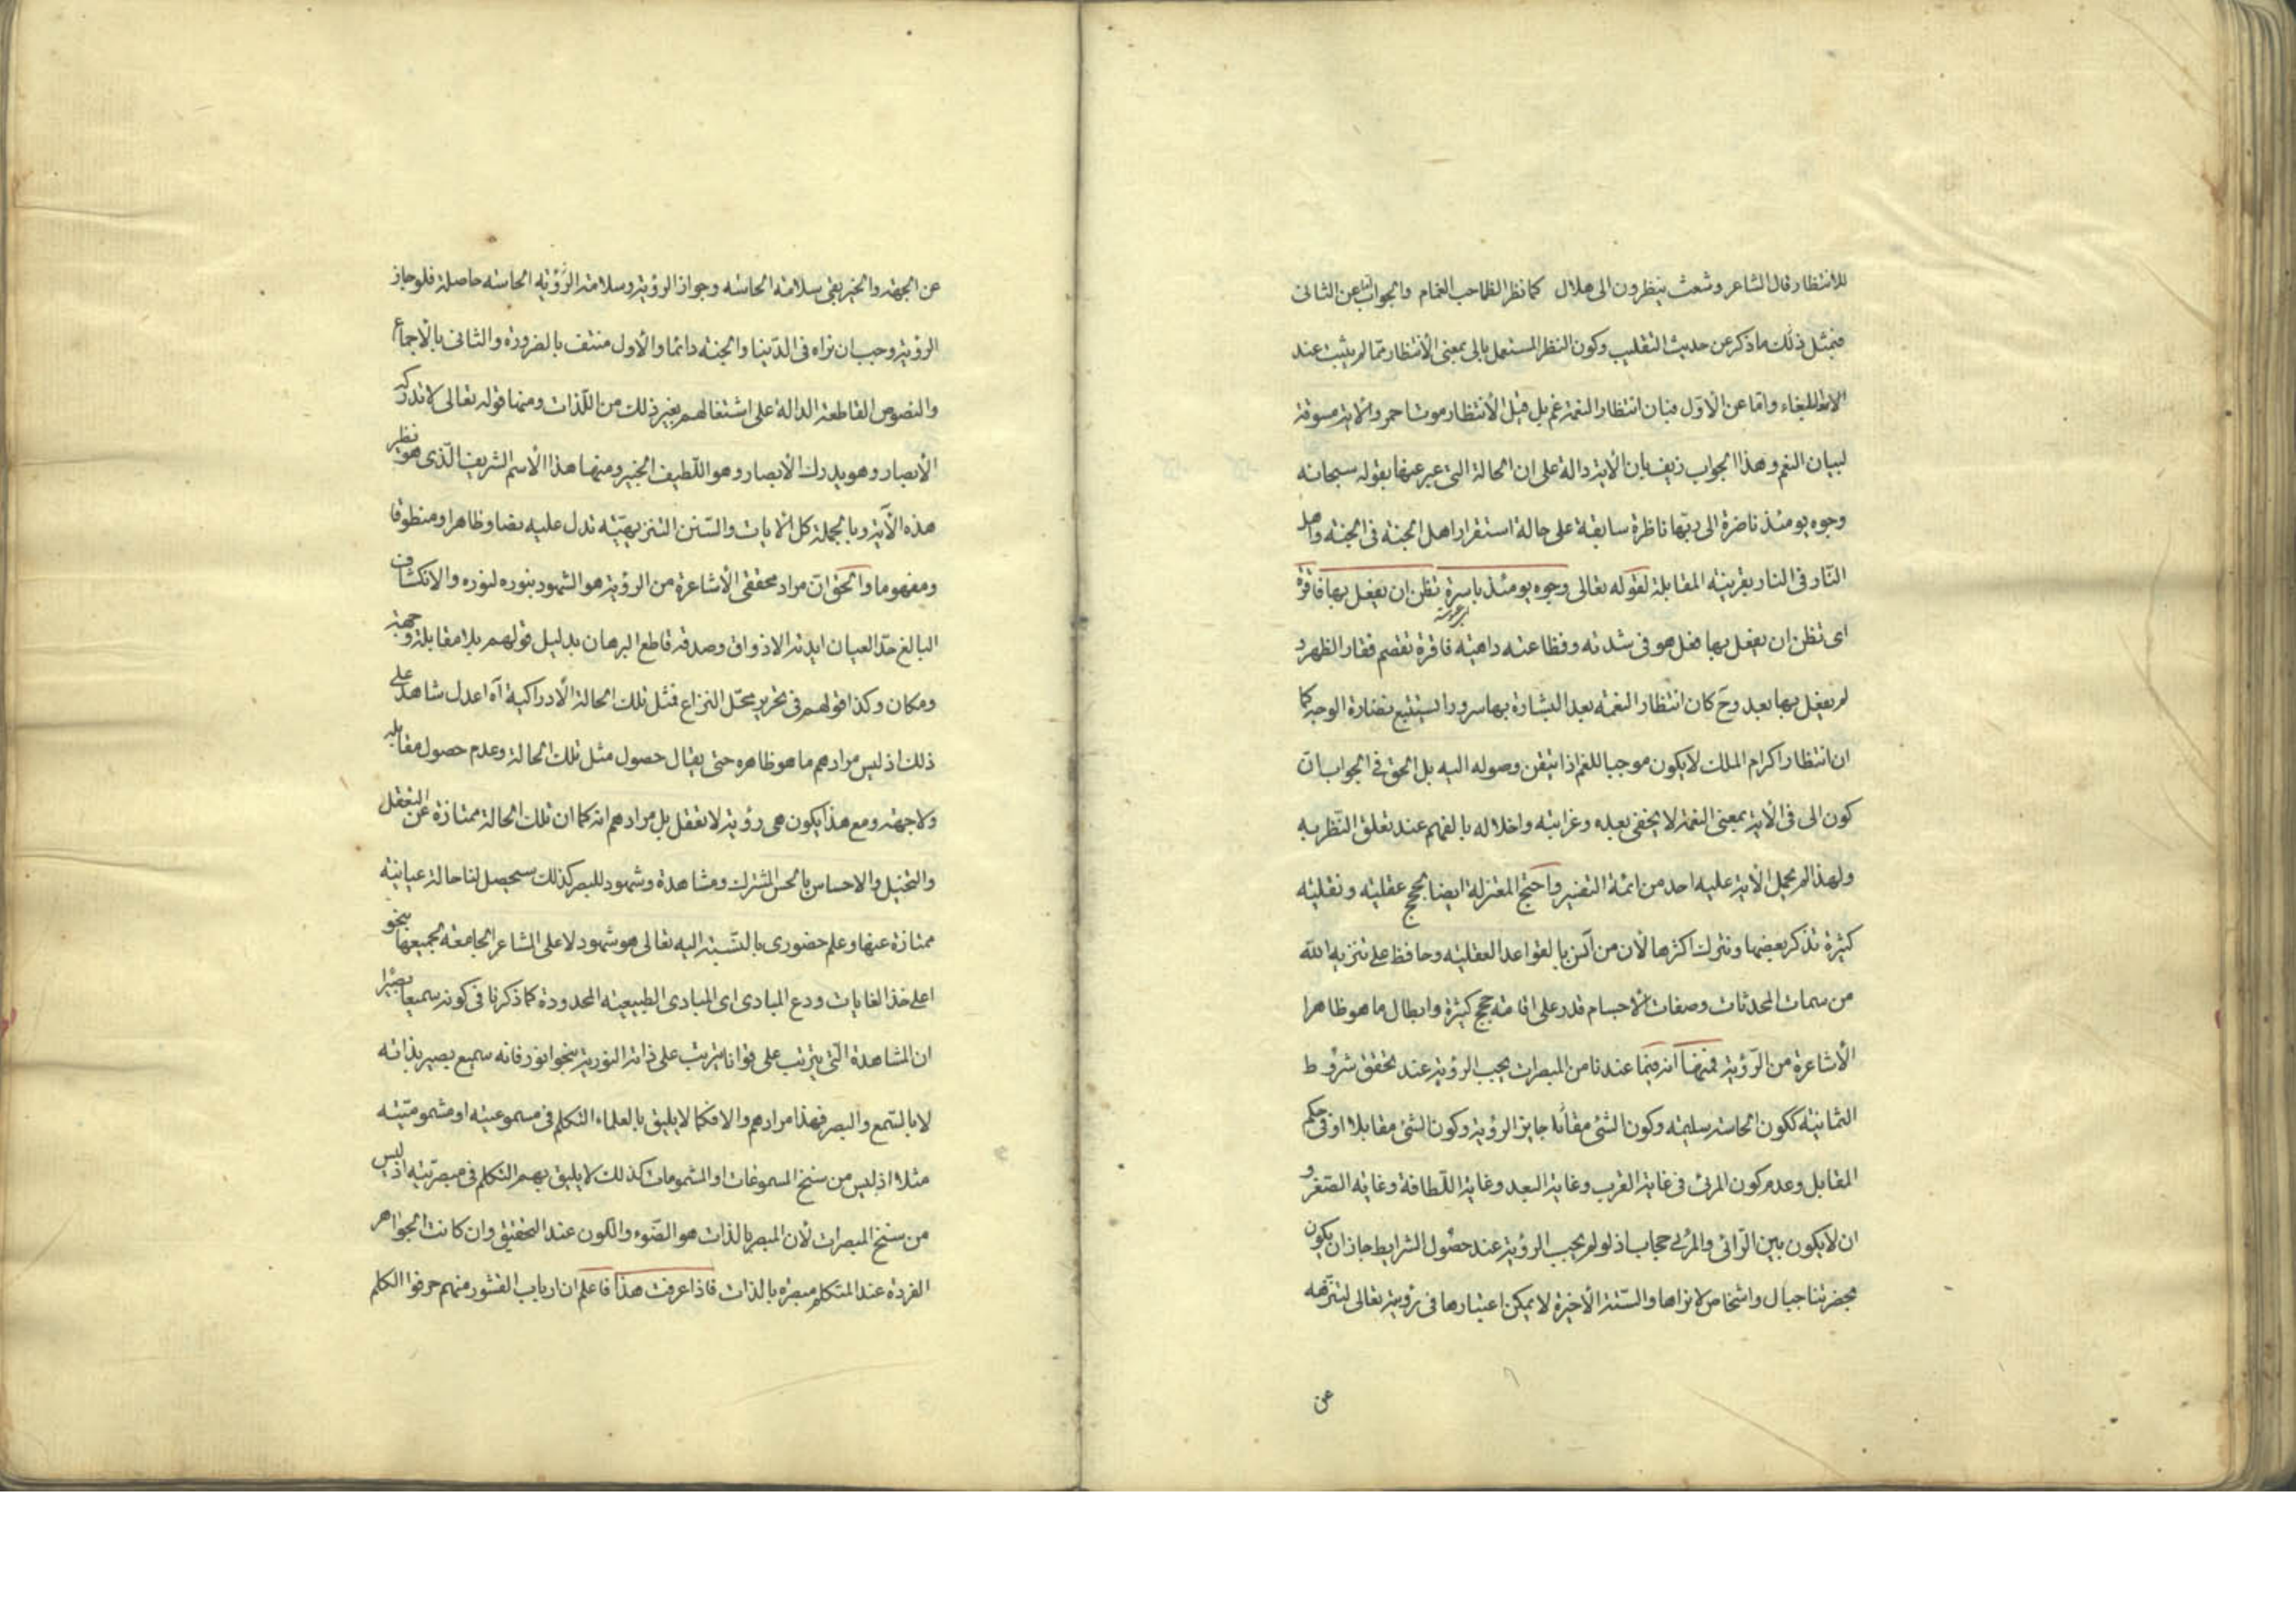 للانتظار قال الشاعر وشعث ينظرون الى هلال كما نظر الظماحب الغمام والجواب اما عن الثانى
فبمثل ذلك ما ذكر عن حديث التقليب وكون النظر المستعمل بالى بمعنى الانتظار مما لم يثبت عند
البلغاء واما عن الاول فبان انتظار النعمة غم بل قيل الانتظار موت احمر والاية مسوقة
لبيان النعم وهذا الجواب زيف بان الاية دالة على ان الحالة التى عبر عنها بقوله سبحانه
وجوه يومئذ ناضرة الى ربها ناظرة سابقة على حالة استقرار اهل الجنة فى الجنة واهل
النار فى النار بقرينة المقابلة لقوله تعالى وجوه يومئذ باسرة تظن ان يفعل بها فاقرة
اى تظن ان يفعل بها فعل هو فى شدته وفظاعته داهية فاقرة تقصم فقار الظهر و
لم يفعل بها بعد وح كان انتظار النعمة بعد البشارة بها سرورا يستتبع نضارة الوجه كما
ان انتظار اكرام الملك لا يكون موجبا للغم اذا تيقن وصوله اليه بل الحق فى الجواب ان
كون الى فى الاية بمعنى النعمة لا يخفى بعده وغرابته واخلاله بالفهم عند تعلق النظر به
ولهذا لم يحمل الاية عليه احد من ائمة التفسير واحتج المعتزلة ايضا بحجج عقلية ونقلية
كثيرة نذكر بعضها ونترك اكثرها لان من آمن بالقواعد العقلية وحافظ على تنزيه الله
من سمات المحدثات وصفات الاجسام قدر على اقامة حجج كثيرة وابطال ما هو ظاهرا
الاشاعرة من الرؤية فمنها انه فيما عندنا من المبصرات يجب الرؤية عند تحقق شروط
الثمانية ككون الحاسة سليمة وكون الشئ جايز الرؤية وكون الشئ مقابلا او فى حكم
المقابل وعدم كون المرئى فى غاية القرب وغاية البعد وغاية اللطافة وغاية الصغر و
ان لا يكون بين الرائى والمرئى حجاب اذ لو لم يجب الرؤية عند حصول الشرايط جاز ان يكون
بحضرتنا جبال واشخاص لا نراها والستة الاخيرة لا يمكن اعتبارها فى رؤيته تعالى لتنزهه
عن
عن الجهة والحيز بقى سلامة الحاسة وجواز الرؤية وسلامة الحاسة حاصلة فلو جاز
الرؤية وجب ان نراه فى الدنيا والجنة دائما والاول منتف بالضرورة والثانى بالاجماع
والنصوص القاطعة الدالة على اشتغالهم بغير ذلك من اللذات ومنها قوله تعالى لا تدركه
الابصار وهو يدرك الابصار وهو اللطيف الخبير ومنها هذا الاسم الشريف الذى هو نظير
هذه الآية وبالجملة كل الايات والسنن التنزيهية تدل عليه نصا وظاهرا ومنطوقا
ومفهوما والحق ان مراد محققى الاشاعرة من الرؤية هو الشهود بنوره لنوره والانكشاف
البالغ حد العيان ايدته الاذواق وصدقه قاطع البرهان بدليل قولهم بلا مقابلة وجهة
ومكان وكذا قولهم فى تحرير محل النزاع فمثل تلك الحالة الادراكية آه اعدل شاهد على
ذلك اذ ليس مرادهم ما هو ظاهره حتى يقال حصول مثل تلك الحالة وعدم حصول مقابلة
ولا جهة ومع هذا يكون هى رؤية لا تعقل بل مرادهم انه كما ان تلك الحالة ممتازة عن التعقل
والتخيل والاحساس بالحس المشترك ومشاهدة وشهود للبصر كذلك سيحصل لنا حالة عيانية
ممتازة عنها وعلم حضورى بالنسبة اليه تعالى هو شهود لا على المشاعر الجامعة لجميعها بنحو
اعلى خذ الغايات ودع المبادى اى المبادى الطبيعية المحدودة كما ذكرنا فى كونه سميعا بصيرا
ان المشاهدة التى يترتب على قوانا يترتب على ذاته النورية بنحو انور فانه سميع بصير بذاته
لا بالسمع والبصر فهذا مرادهم والا فكما لا يليق بالعلماء التكلم فى مسموعيته او مشموميته
مثلا اذ ليس من سنخ المسموعات او المشمومات كذلك لا يليق بهم التكلم فى مبصريته اذ ليس
من سنخ المبصرات لان المبصر بالذات هو الضوء واللون عند التحقيق وان كانت الجواهر
الفردة عند المتكلم مبصرة بالذات فاذا عرفت هذا فاعلم ان ارباب القشور منهم حرفوا الكلم